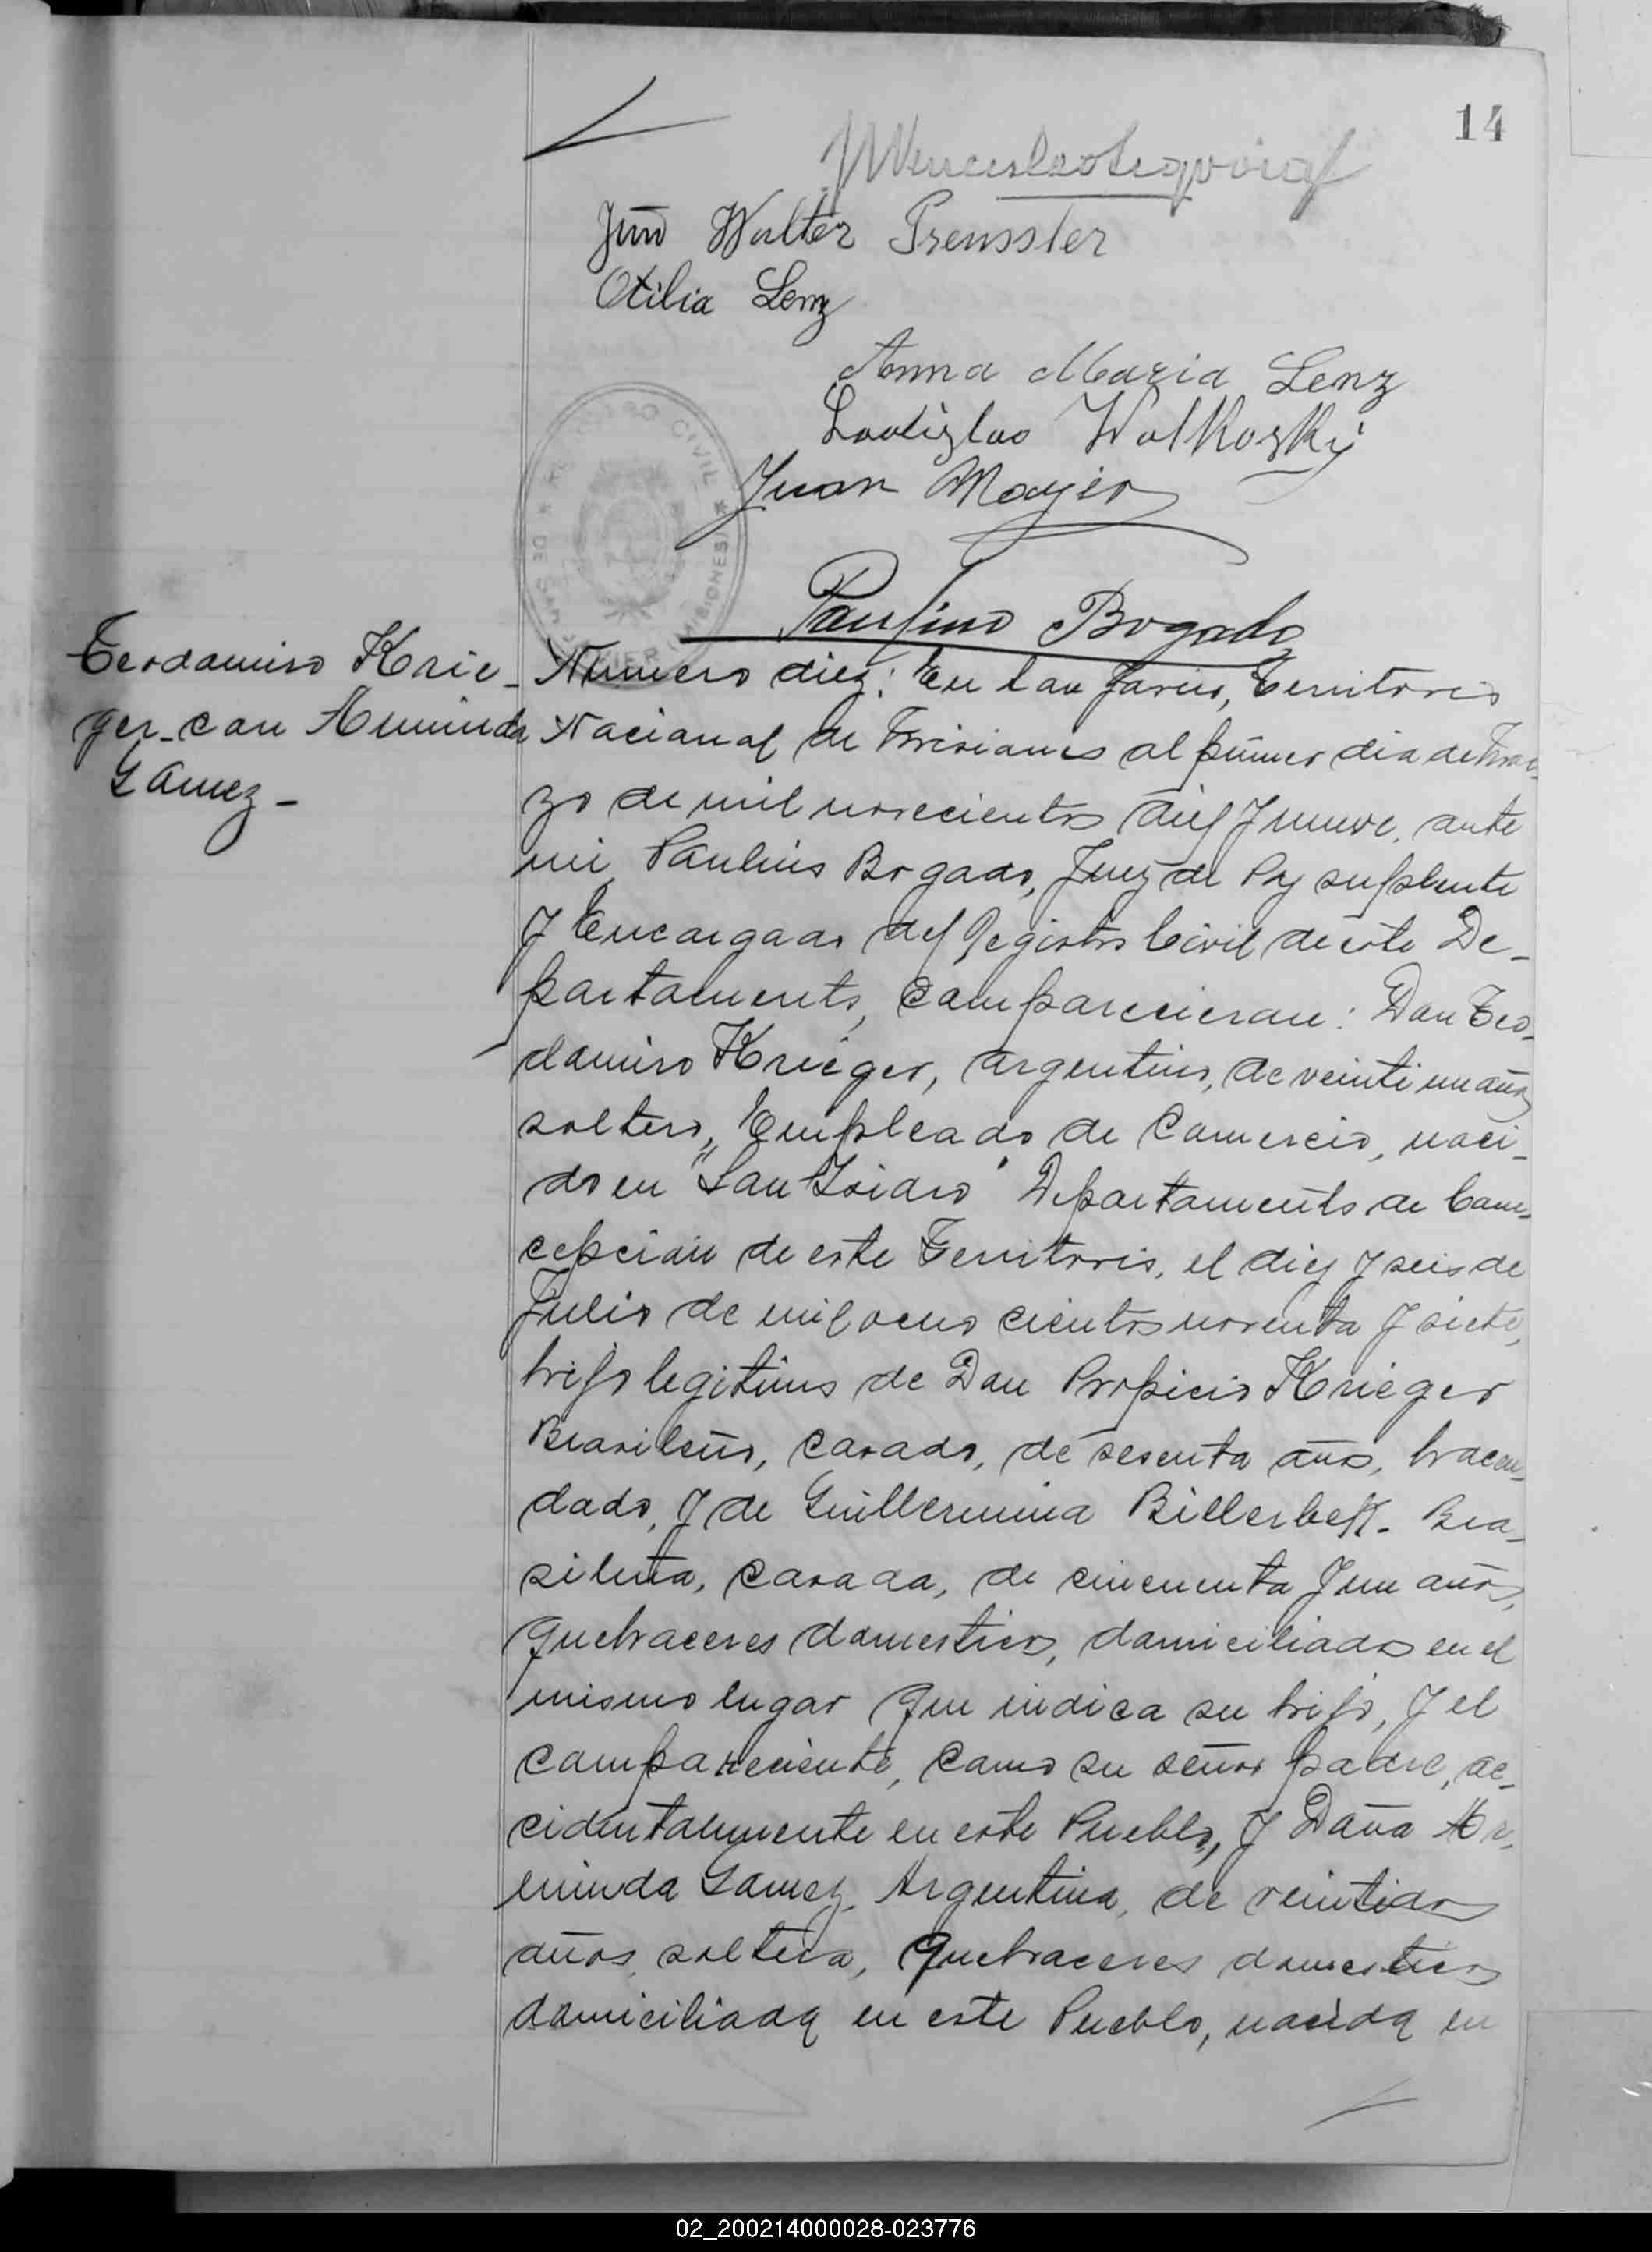 14
Walter Preussler
Otilia Lenz
Anna Maria Lenz
Ladislao Walkosky
Juan Mayer
REGISTRO CIVIL
DE SAN JAVIER (MISIONES)
Paulino Bogado
Teodamiro Krie-
ger-con Arminda
Gamez-
Numero diez: En San Javier, Territorio
Nacional de Misiones al primer dia de Mar-
zo de mil novecientos diez y nueve, ante
mi, Paulino Bogado, Juez de Paz suplente
y Encargado del Registro Civil de este De-
partamento, comparecieron: Don Teo-
damiro Krieger, argentino, de veinti un años
soltero, Empleado de Comercio, naci-
do en "San Isidro" Departamento de Con-
cepcion de este Territorio, el diez y seis de
Julio de mil ocho cientos noventa y siete,
hijo legitimo de Don Propicio Krieger
Brasileño, casado, de sesenta años, hacen-
dado, y de Guillermina Billerbek- Bra-
sileña, casada, de cincuenta y un años,
quehaceres domesticos, domiciliados en el
mismo lugar que indica su hijo, y el
compareciente, como su señor padre, ac-
cidentalmente en este Pueblo, y Doña Ar-
minda Gamez, Argentina, de veintidos
años, soltera, quehaceres domesticos
domiciliada en este Pueblo, nacida en
02_200214000028-023776